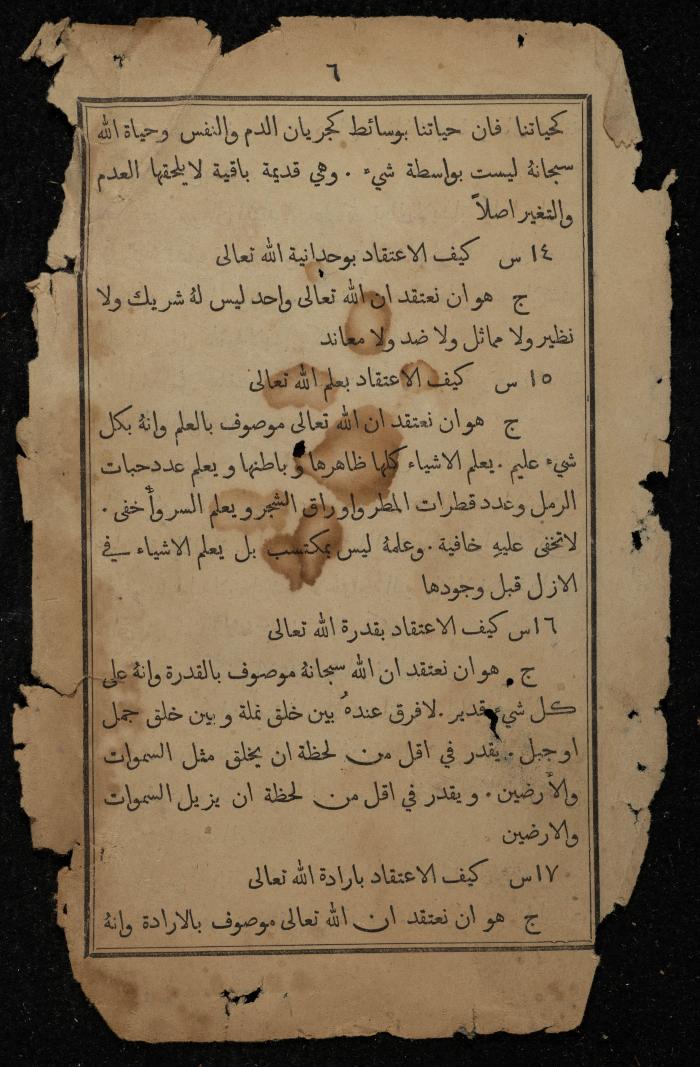 ٦
كحياتنا فان حياتنا بوسائط كجريان الدم والنفس وحياة الله
سبحانهُ ليست بواسطة شيء . وهي قديمة باقية لا يلحقها العدم
والتغير اصلاً
١٤ س كيف الاعتقاد بوحدانية الله تعالى
ج هو ان نعتقد ان الله تعالى واحد ليس لهُ شريك ولا
نظير ولا مماثل ولا ضد ولا معاند
١٥ س كيف الاعتقاد بعلم الله تعالى
ج هو ان نعتقد ان الله تعالى موصوف بالعلم وانهُ بكل
شيء عليم . يعلم الاشياء كلها ظاهرها و باطنها و يعلم عدد حبات
الرمل وعدد قطرات المطر واوراق الشجر و يعلم السر وأخفى .
لا تخفى عليهِ خافية . وعلمهُ ليس بمكتسب بل يعلم الاشياء في
الازل قبل وجودها
١٦ س كيف الاعتقاد بقدرة الله تعالى
ج هو ان نعتقد ان الله سبحانهُ موصوف بالقدرة وانهُ على
كل شيء قدير . لا فرق عندهُ بين خلق نملة و بين خلق جمل
او جبل . يقدر في اقل من لحظة ان يخلق مثل السموات
والأرضين . و يقدر في اقل من لحظة ان يزيل السموات
والارضين
١٧ س كيف الاعتقاد بارادة الله تعالى
ج هو ان نعتقد ان الله تعالى موصوف بالارادة وانهُ